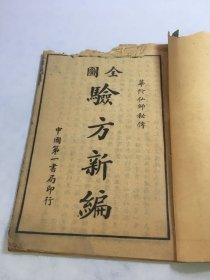 華佗仙師秘傳
圖全
驗方新編
中國第一書局印行